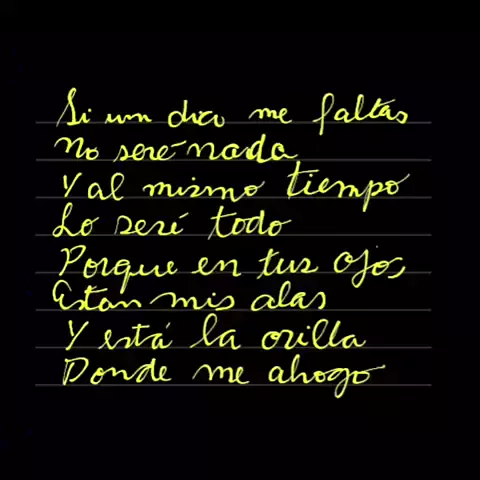 Si un dia me faltas
No seré nada
Y al mismo tiempo
Lo seré todo
Porque en tus ojos
Estan mis alas
Y está la orilla
Donde me ahogo